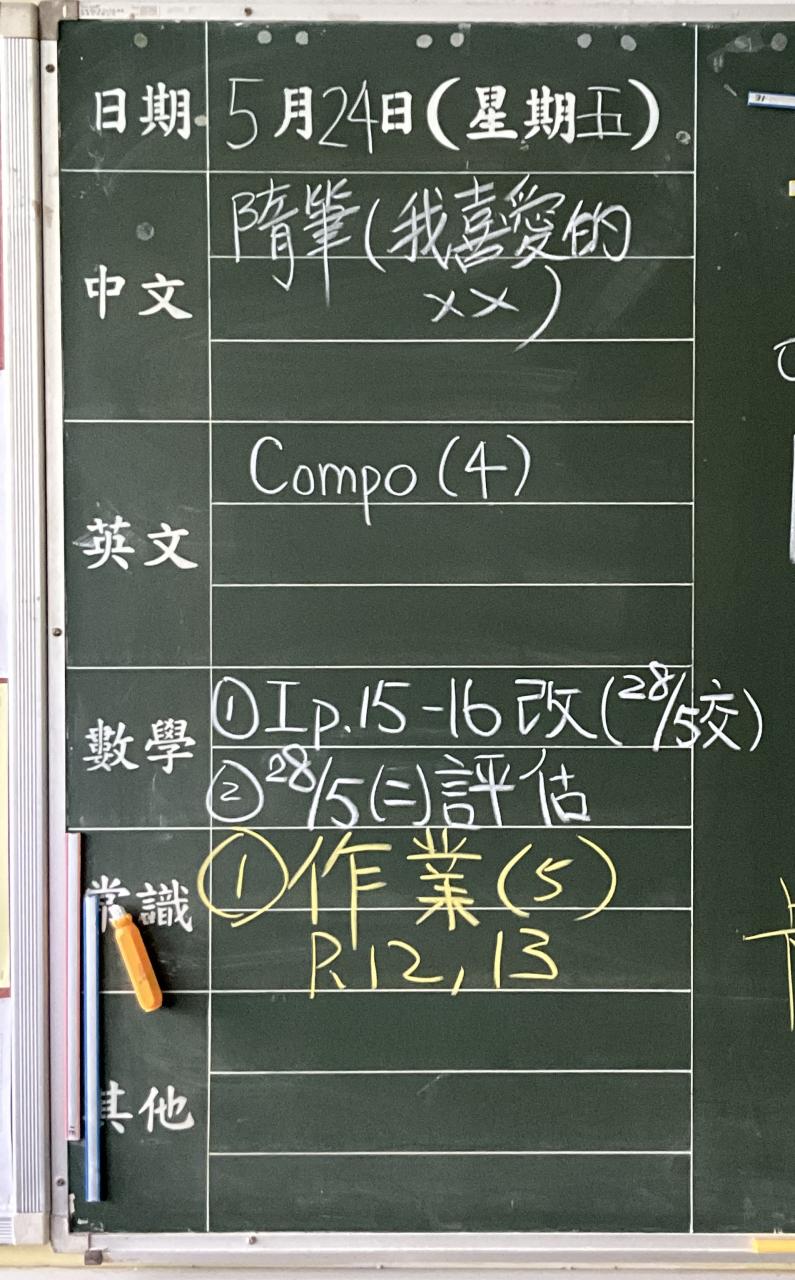 日期 5月24日(星期五)
中文 隋筆(我喜愛的
xx)
英文 Compo (4)
數學 ①I p.15-16 改(28/5交)
②28/5(二)評估
常識 ①作業(5)
P.12,13
其他